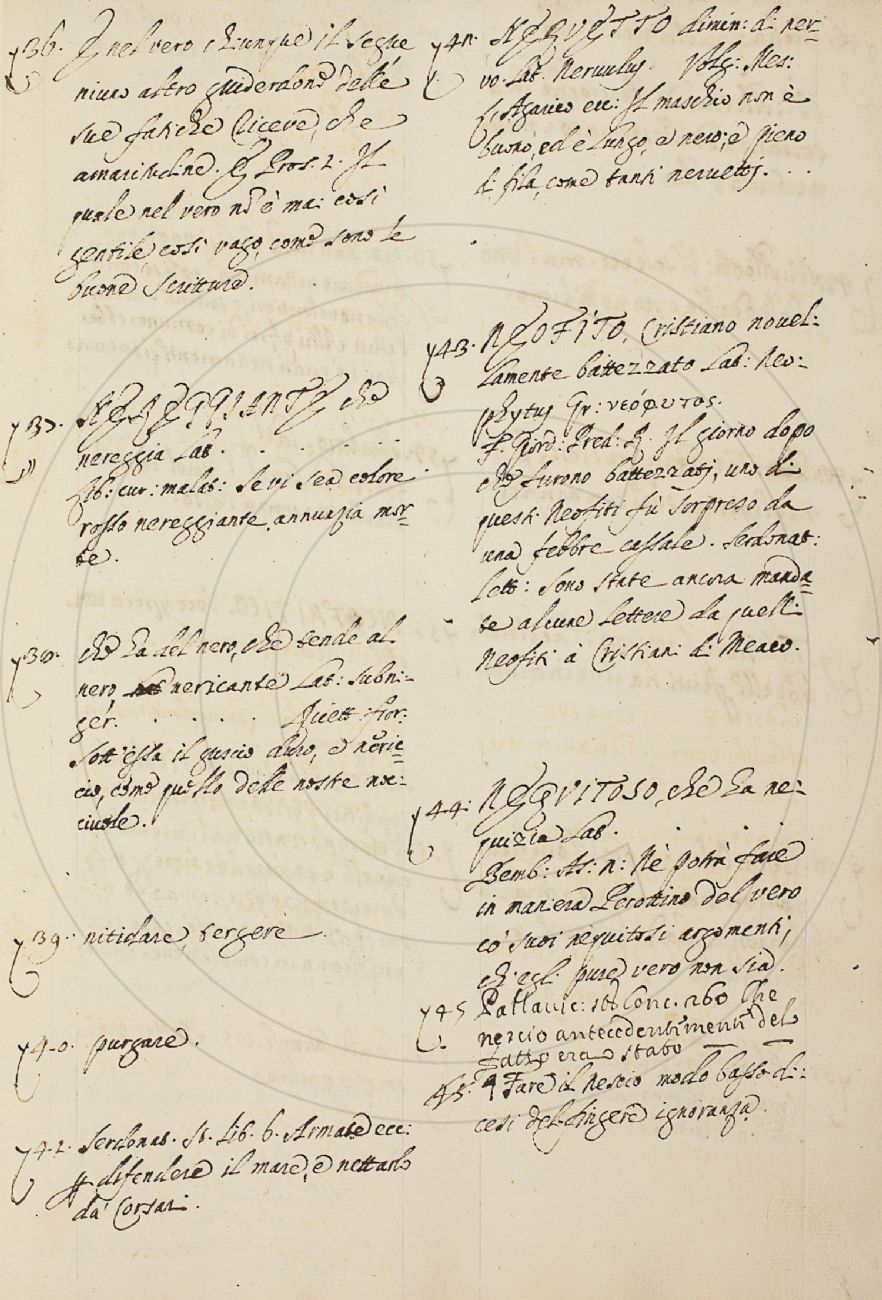 736. E nel vero chiunque il segue
niuno altro guiderdone delle
sue fatiche riceve, che
amaritudine. E Pros. 1. Il
quale nel vero nō è mai così
gentile, così vago, come sono le
buone scritture.
737. NEREGGIANTE che
nereggia Lat. . . . . . .
Lib: cur: malat: Se vi sea colore
rosso nereggiante, annunzia mor=
te.
738. che ha del nero, che tende al
nero, nericante Lat: subni=
ger. . . . . . Ricett: fior:
Sott'essa il guscio duro, e neric=
cio, come quello delle nostre noc=
ciuole.
739. nitidare, tergere
740. purgare.
741. Serdonat. St. Lib. 6. Armate ecc:
difendere il mare, e nettarlo
da' Corsari.
742. NERVETTO dimin: di ner=
vo. Lat. Nervulus. Volg: Mes:
Agarico ecc: Il maschio non è
buono, ed è lungo, e nero; e pieno
di fila, come tanti nervetti. . .
743. NEOFITO, Cristiano novel=
lamente battezzato Lat: Neo=
phytus Gr: νεόφυτος.
F. Giord: Pred: R. Il giorno dopo
che furono battezzati, uno di
questi Neofiti fù sorpreso da
una febbre cassale. Serdonat:
Lett: Sono state ancora manda=
te alcune Lettere da quelli
Neofiti à Cristiani di Meaco.
744. NEQVITOSO, che ha ne=
quizia Lat. . . . .
Bemb: As: n: Nè potrà fare
in maniera Perottino del vero
co' suoi nequitosi argomenti,
ch'egli pure vero non sia.
745 Pallavic: st. Conc. 260 Che
nescio antecedentimenti del
fatto era stato
45. Fare il Nescio modo basso di=
cesi del fingere ignoranza.